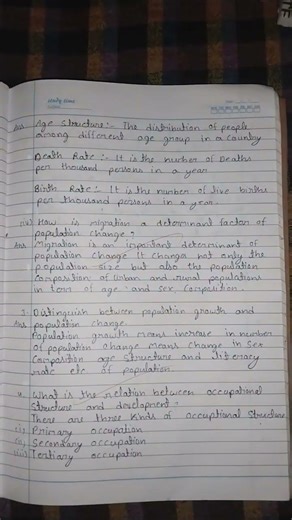 Ans Age Structure:- The distribution of people
among different age group in a country
Death Rate:- It is the number of Deaths
per thousand persons in a year
Birth Rate:- It is the number of live births
per thousand persons in a year.
How is migration a determinant factor of
population change?
Ans Migration is an important determinant of
population change It changes not only the
population size but also the population
composition of urban and rural populations
in terms of age and sex composition.
3. Distinguish between population growth and
Ans population change.
Population growth means increase in number
of population change means change in sex
composition age structure and literacy
rate etc of population.
4. What is the relation between occupational
structure and development?
There are three kinds of occuptional structure
(i) Primary occupation
(ii) Secondary occupation
(iii) Tertiary occupation